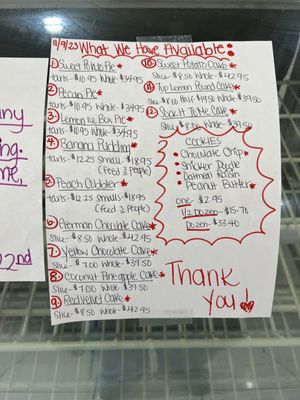 11/9/23 What We Have Available:
① Sweet Potato Pie*
tarts-$10.95 Whole-$34.95
② Pecan Pie*
tarts-$10.95 Whole-$34.95
③ Lemon Ice Box Pie*
tarts-$10.95 Whole-$34.95
④ Banana Pudding*
tarts-$12.25 Small-$18.95
(Feed 2 People)
⑤ Peach Cobbler*
tarts-$12.25 Small-$18.95
(Feed 2 People)
⑥ German Chocolate Cake*
Slice-$8.50 Whole-$42.95
⑦ Yellow Chocolate Cake*
Slice-$7.00 Whole-$39.50
⑧ Coconut Pineapple Cake*
Slice-$7.00 Whole-$39.50
⑨ Red Velvet Cake*
Slice-$8.50 Whole-$42.95
⑩ Sweet Potato Cake*
Slice-$8.50 Whole-$42.95
⑪ 7up Lemon Pound Cake*
Slice-$8.00 Half-$19.50 Whole-$39.50
⑫ Sock It To Me Cake*
Slice-$8.00 Whole-$39.50
COOKIES
• Chocolate Chip*
• Snicker Doodle
• Oatmeal Raisin
• Peanut Butter*
one-$2.95
1/2 Dozen-$15.70
Dozen-$33.40
Thank
you!
22nd